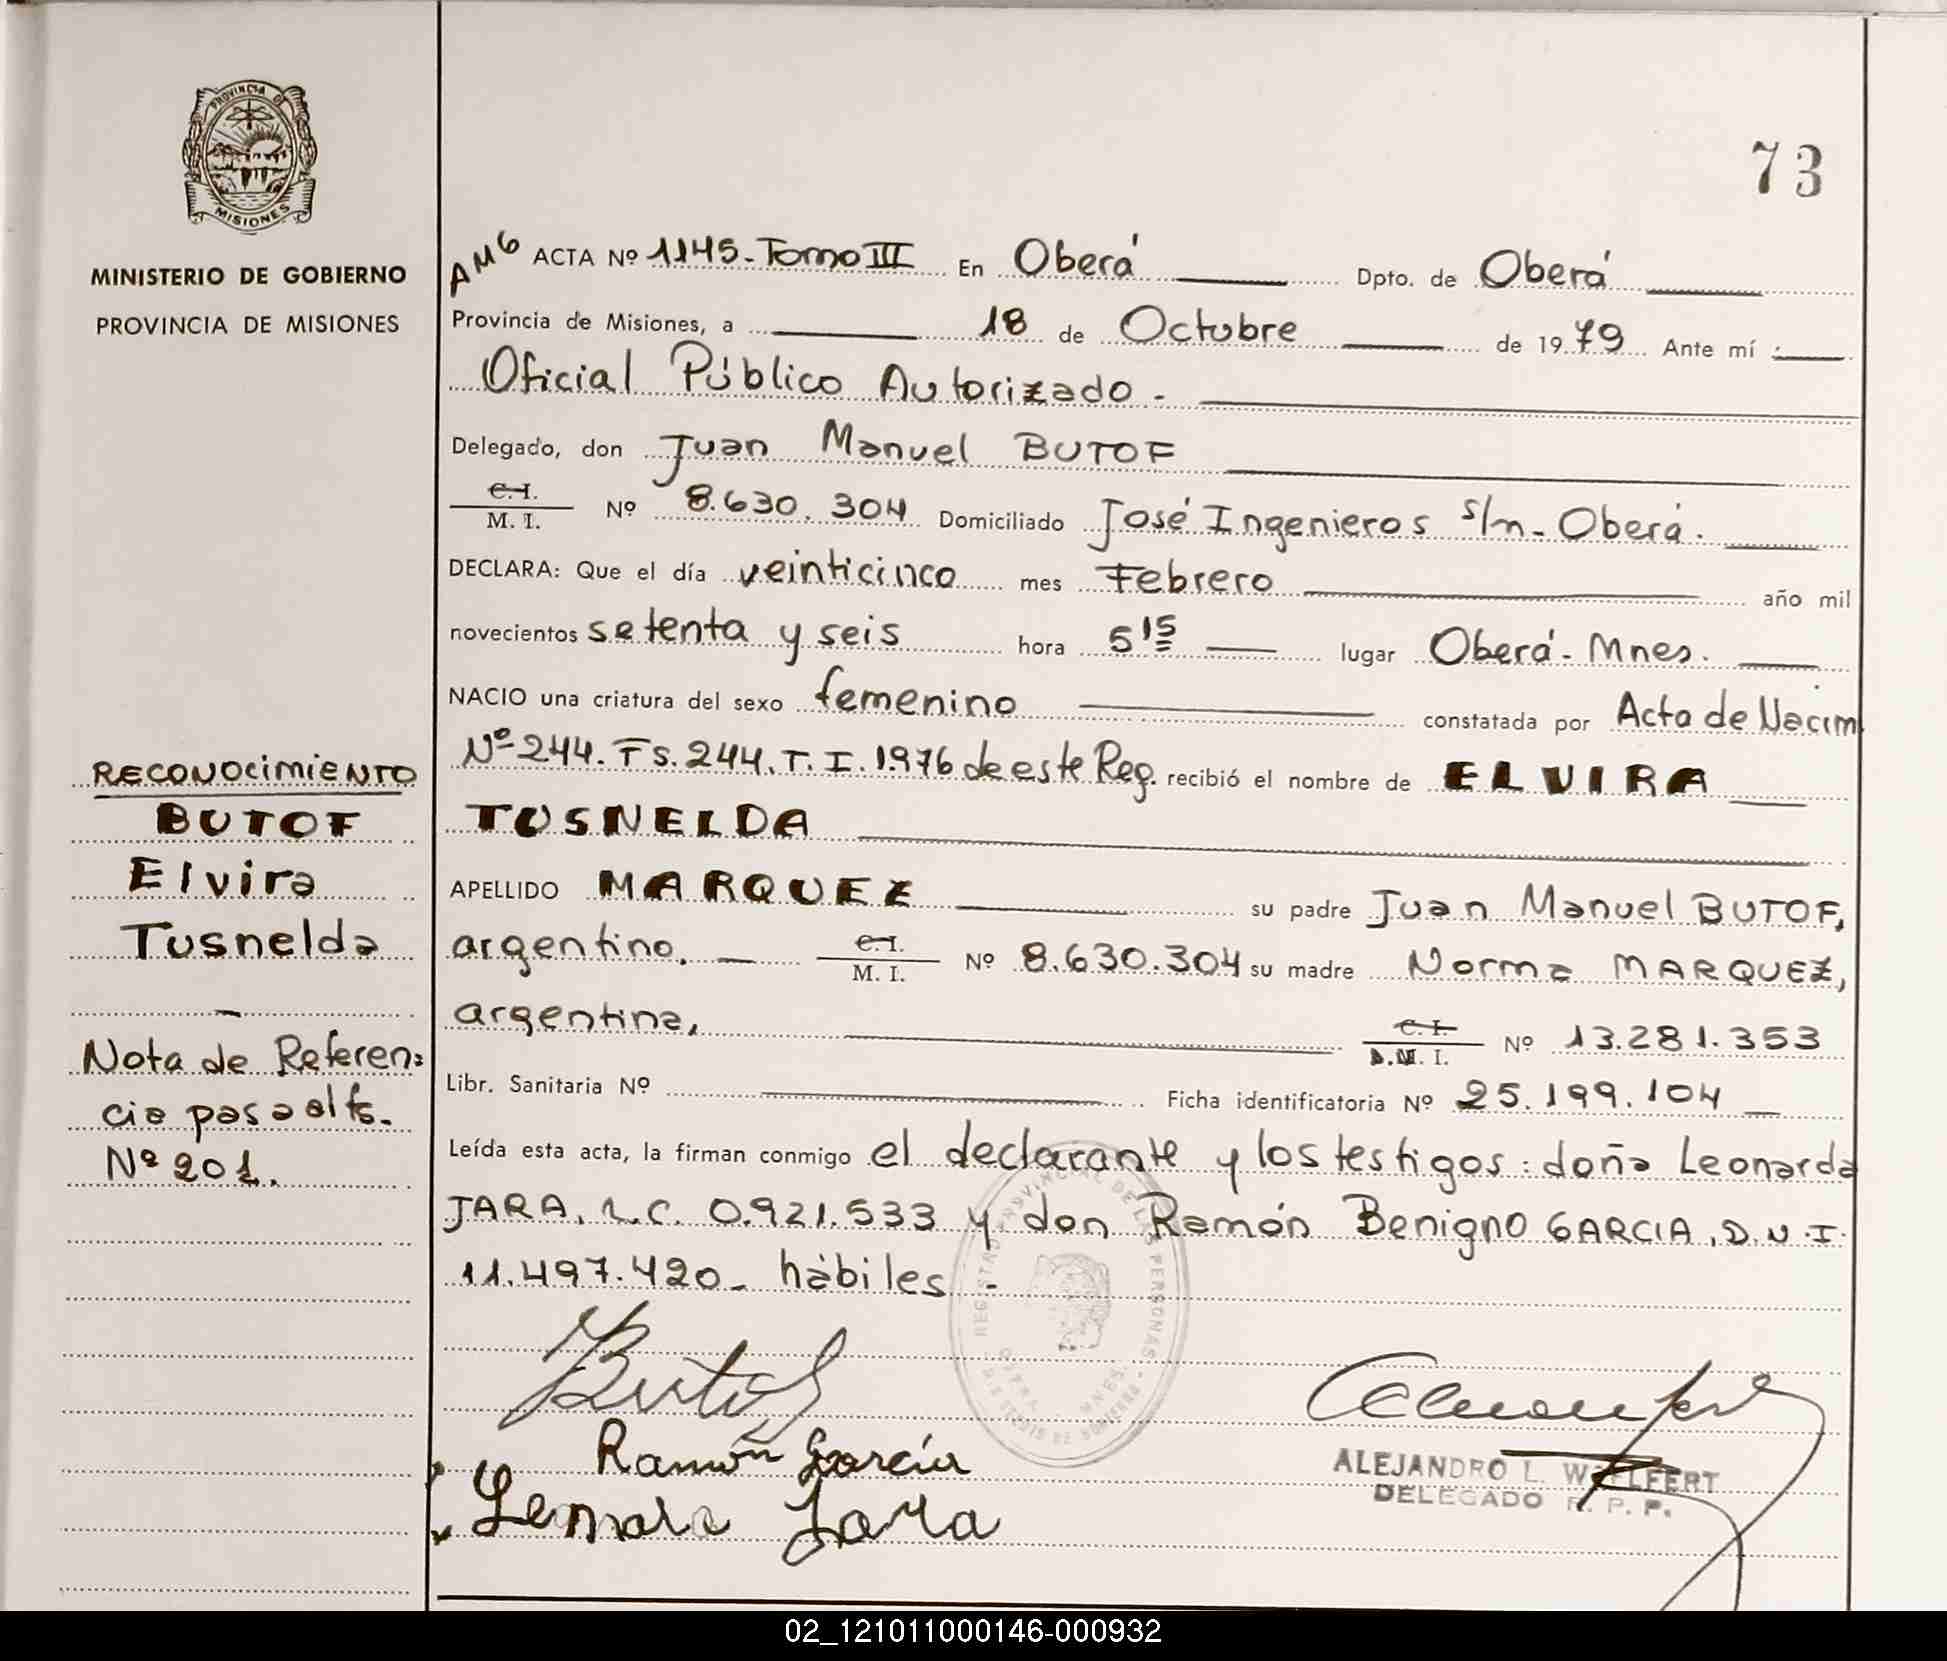 PROVINCIA DE
MISIONES
MINISTERIO DE GOBIERNO
PROVINCIA DE MISIONES
73
AMG ACTA Nº 1145-Tomo III En Oberá Dpto. de Oberá
Provincia de Misiones, a 18 de Octubre de 1979 Ante mí :
Oficial Público Autorizado -
Delegado, don Juan Manuel BUTOF
C.I.
M. I. Nº 8.630.304 Domiciliado José Ingenieros s/n- Oberá.
DECLARA: Que el día veinticinco mes Febrero año mil
novecientos setenta y seis hora 5 15 lugar Oberá- Mnes.
NACIO una criatura del sexo femenino constatada por Acta de Nacim
Nº 244. Fs. 244. T. I. 1976 de este Reg. recibió el nombre de ELVIRA
TUSNELDA
APELLIDO MARQUEZ su padre Juan Manuel BUTOF,
argentino. C.I.
M. I. Nº 8.630.304 su madre Norma MARQUEZ,
argentina, C. I.
D.N. I. Nº 13.281.353
Libr. Sanitaria Nº Ficha identificatoria Nº 25.199.104
Leída esta acta, la firman conmigo el declarante y los testigos: doña Leonarda
JARA, L.C. 0.921.533 y don Ramón Benigno GARCIA, D.N.I.
11.497.420- hábiles -
RECONOCIMIENTO
BUTOF
Elvira
Tusnelda
Nota de Referen=
cia pasa al fs.
Nº 201.
REGISTRO PROVINCIAL DE LAS PERSONAS
OBERA MNES.
Butof
Ramón García
Lenarda Jara
ALEJANDRO L. WELFERT
DELEGADO R. P. P.
02_121011000146-000932